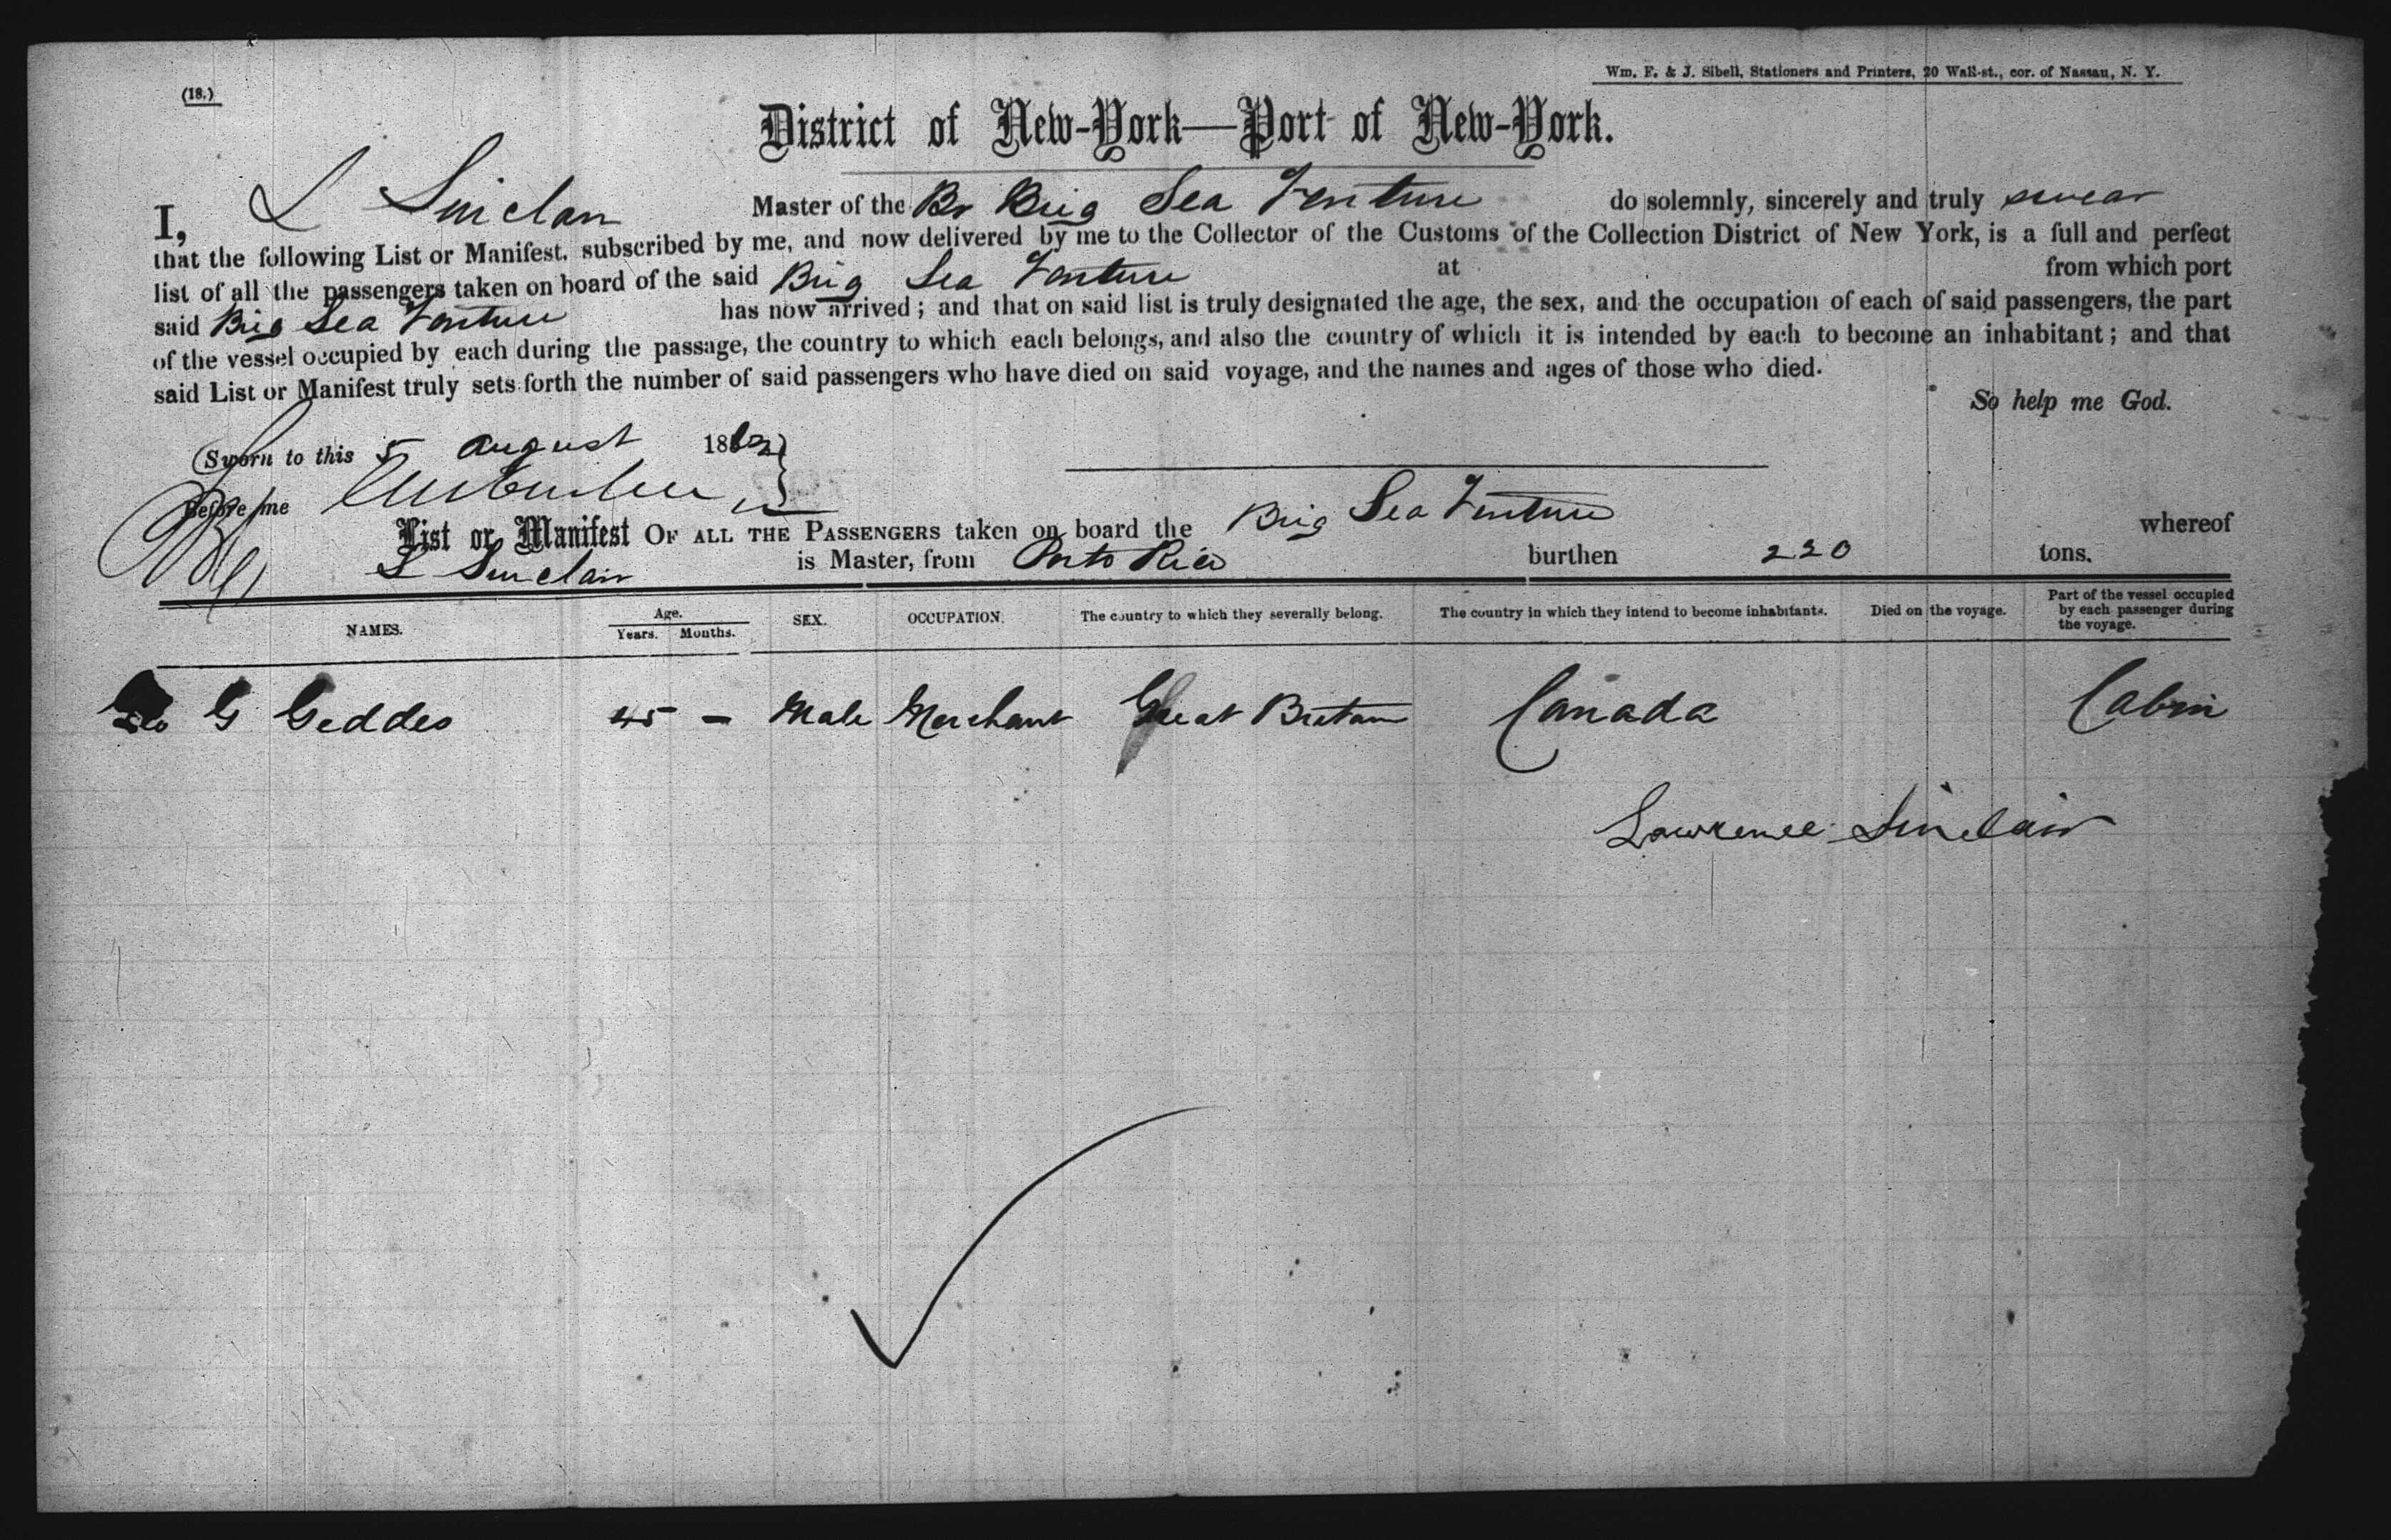 Wm. F. & J. Sibell, Stationers and Printers, 20 Wall-st., cor. of Nassau, N. Y.
(18.)
District of New-York—Port of New-York.
I, L Sinclair Master of the Br Brig Sea Venture do solemnly, sincerely and truly swear
that the following List or Manifest, subscribed by me, and now delivered by me to the Collector of the Customs of the Collection District of New York, is a full and perfect
list of all the passengers taken on board of the said Brig Sea Venture at from which port
said Brig Sea Venture has now arrived; and that on said list is truly designated the age, the sex, and the occupation of each of said passengers, the part
of the vessel occupied by each during the passage, the country to which each belongs, and also the country of which it is intended by each to become an inhabitant; and that
said List or Manifest truly sets forth the number of said passengers who have died on said voyage, and the names and ages of those who died.
So help me God.
Sworn to this 5 August 1862
Before me
List or Manifest OF ALL THE PASSENGERS taken on board the Brig Sea Venture whereof
L Sinclair is Master, from Porto Rico burthen 220 tons.
NAMES. Age. Years. Months. SEX. OCCUPATION. The country to which they severally belong. The country in which they intend to become inhabitants. Died on the voyage. Part of the vessel occupied by each passenger during the voyage.
G Geddes 45 – Male Merchant Great Britain Canada Cabin
Lawrence Sinclair